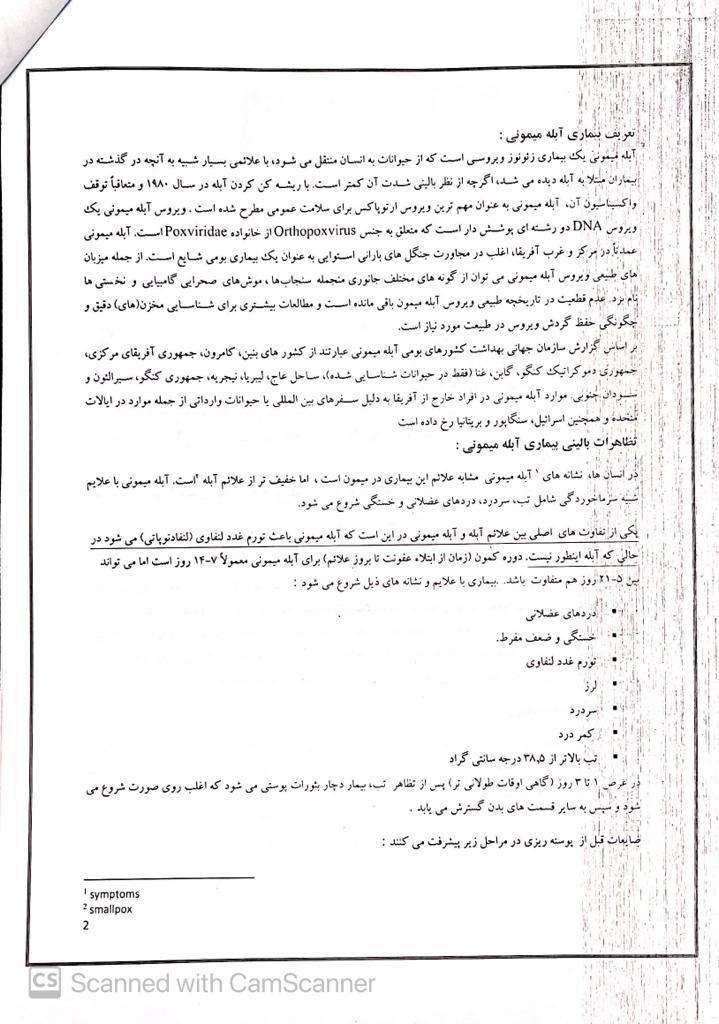 تعریف بیماری آبله میمونی :
آبله میمونی یک بیماری زئونوز ویروسی است که از حیوانات به انسان منتقل می شود، با علائمی بسیار شبیه به آنچه در گذشته در
بیماران مبتلا به آبله دیده می شد، اگرچه از نظر بالینی شدت آن کمتر است. با ریشه کن کردن آبله در سال ۱۹۸۰ و متعاقباً توقف
واکسیناسیون آن، آبله میمونی به عنوان مهم ترین ویروس ارتوپاکس برای سلامت عمومی مطرح شده است . ویروس آبله میمونی یک
ویروس DNA دو رشته ای پوشش دار است که متعلق به جنس Orthopoxvirus از خانواده Poxviridae است. آبله میمونی
عمدتاً در مرکز و غرب آفریقا، اغلب در مجاورت جنگل های بارانی استوایی به عنوان یک بیماری بومی شایع است. از جمله میزبان
های طبیعی ویروس آبله میمونی می توان از گونه های مختلف جانوری منجمله سنجاب‌ها ، موش‌های صحرایی گامبیایی و نخستی ها
نام برد. عدم قطعیت در تاریخچه طبیعی ویروس آبله میمون باقی مانده است و مطالعات بیشتری برای شناسایی مخزن(های) دقیق و
چگونگی حفظ گردش ویروس در طبیعت مورد نیاز است.
بر اساس گزارش سازمان جهانی بهداشت کشورهای بومی آبله میمونی عبارتند از کشور های بنین، کامرون، جمهوری آفریقای مرکزی،
جمهوری دموکراتیک کنگو، گابن، غنا (فقط در حیوانات شناسایی شده)، ساحل عاج، لیبریا، نیجریه، جمهوری کنگو، سیرالئون و
سودان جنوبی. موارد آبله میمونی در افراد خارج از آفریقا به دلیل سفرهای بین المللی یا حیوانات وارداتی از جمله موارد در ایالات
متحده و همچنین اسرائیل، سنگاپور و بریتانیا رخ داده است
تظاهرات بالینی بیماری آبله میمونی :
در انسان ها، نشانه های ¹ آبله میمونی مشابه علائم این بیماری در میمون است ، اما خفیف تر از علائم آبله ² است. آبله میمونی با علایم
شبه سرماخوردگی شامل تب، سردرد، دردهای عضلانی و خستگی شروع می شود.
یکی از تفاوت های اصلی بین علائم آبله و آبله میمونی در این است که آبله میمونی باعث تورم غدد لنفاوی (لنفادنوپاتی) می شود در
حالی که آبله اینطور نیست. دوره کمون (زمان از ابتلاء عفونت تا بروز علائم) برای آبله میمونی معمولاً ۷-۱۴ روز است اما می تواند
بین ۵-۲۱ روز هم متفاوت باشد. بیماری با علایم و نشانه های ذیل شروع می شود :
▪ دردهای عضلانی
▪ خستگی و ضعف مفرط.
▪ تورم غدد لنفاوی
▪ لرز
▪ سردرد
▪ کمر درد
▪ تب بالاتر از ۳۸٫۵ درجه سانتی گراد
در عرض ۱ تا ۳ روز (گاهی اوقات طولانی تر) پس از تظاهر تب، بیمار دچار بثورات پوستی می شود که اغلب روی صورت شروع می
شود و سپس به سایر قسمت های بدن گسترش می یابد .
ضایعات قبل از پوسته ریزی در مراحل زیر پیشرفت می کنند :
¹ symptoms
² smallpox
2
CS Scanned with CamScanner